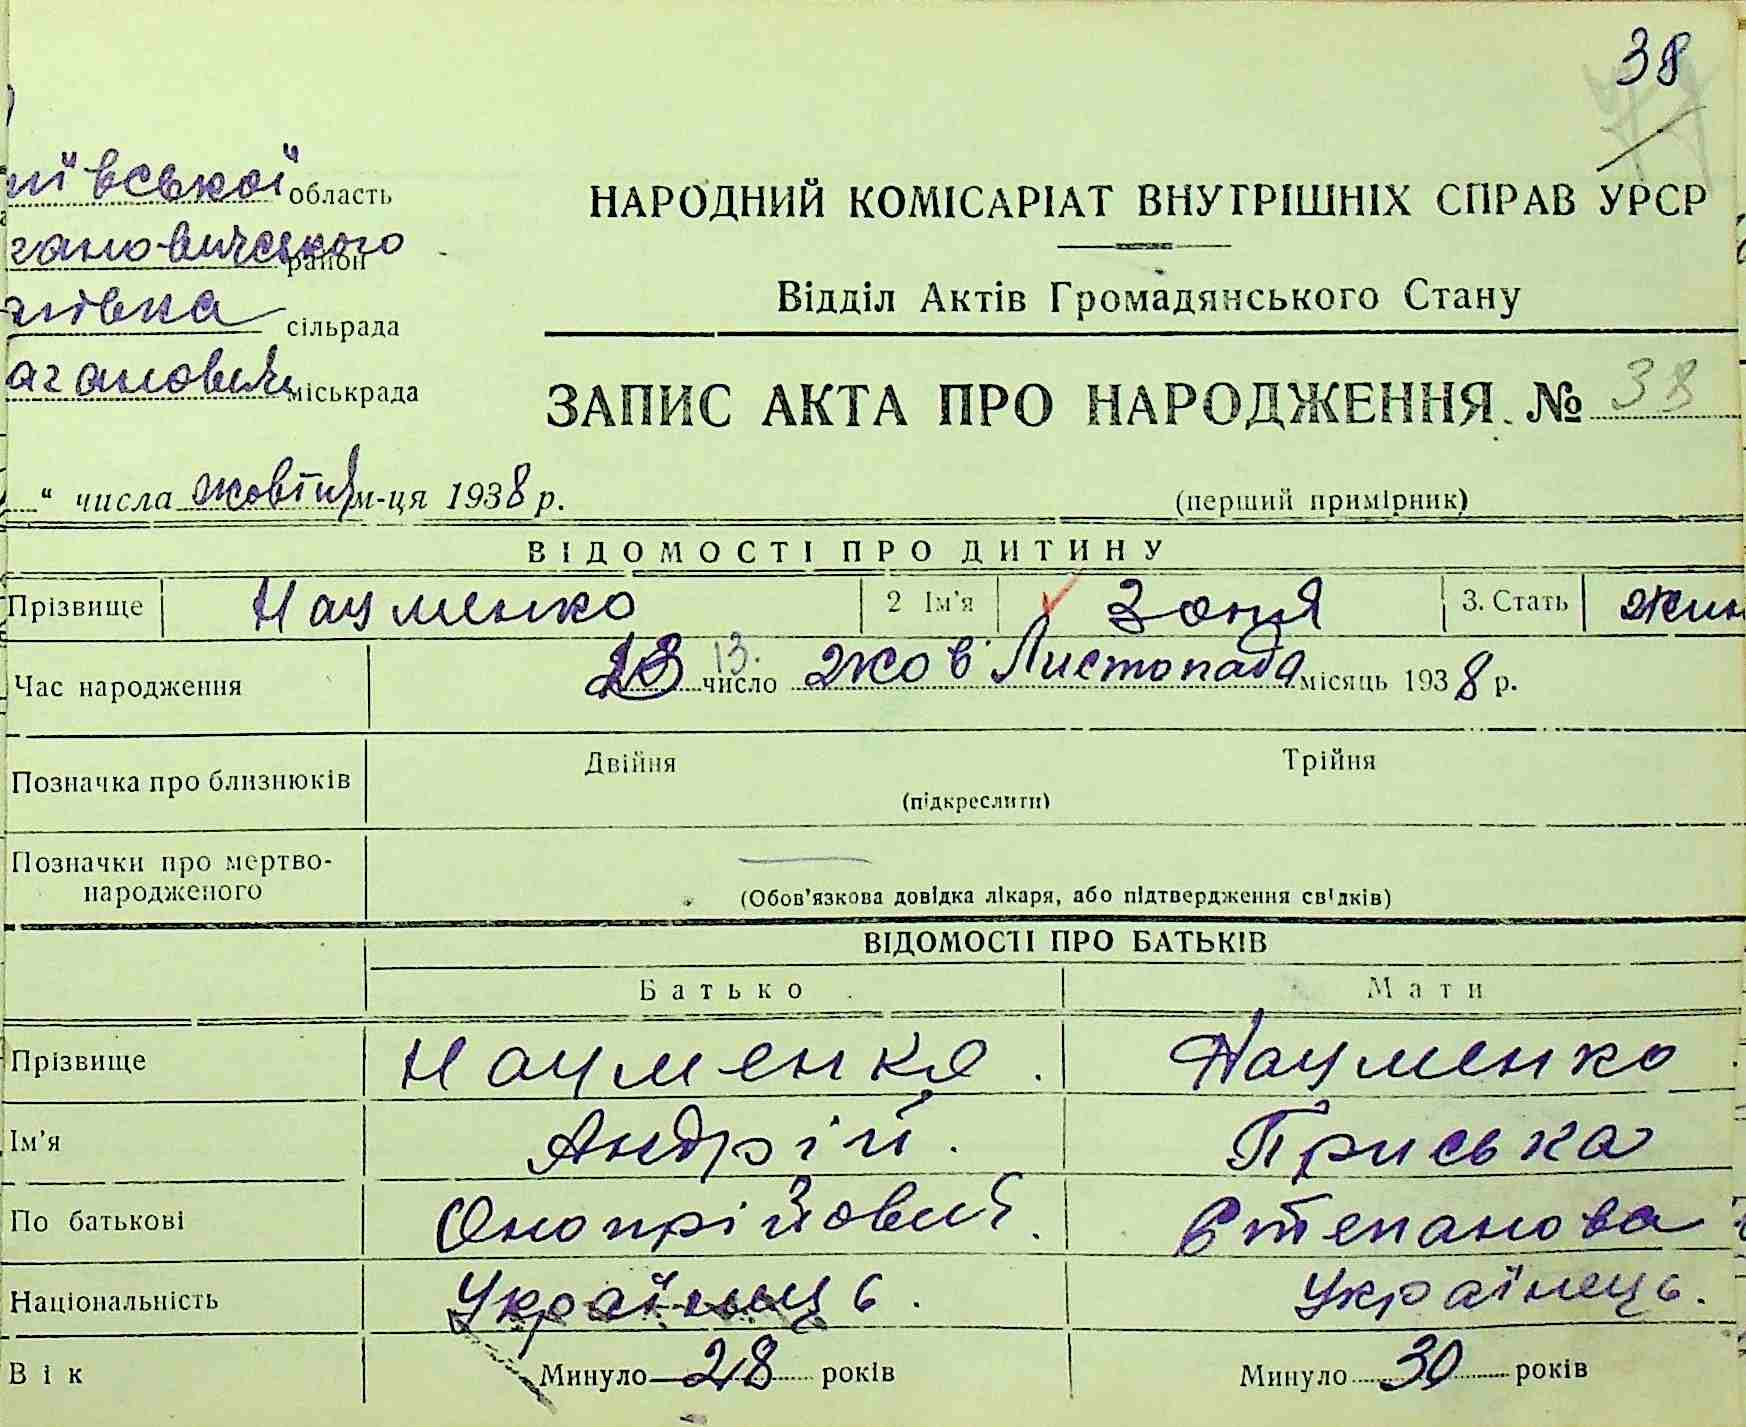 38
ївської область
гановичського район
лівка сільрада
агановичі міськрада
НАРОДНИЙ КОМІСАРІАТ ВНУТРІШНІХ СПРАВ УРСР
Відділ Актів Громадянського Стану
ЗАПИС АКТА ПРО НАРОДЖЕННЯ. № 38
“ числа жовтня м-ця 1938 р.
(перший примірник)
ВІДОМОСТІ ПРО ДИТИНУ
Прізвище Науменко 2 Ім’я Зоня 3. Стать жін
Час народження 23 13. число жов Листопада місяць 1938 р.
Позначка про близнюків Двійня Трійня
(підкреслити)
Позначки про мертво-
народженого
(Обов’язкова довідка лікаря, або підтвердження свідків)
ВІДОМОСТІ ПРО БАТЬКІВ
Батько Мати
Прізвище Науменко. Науменко
Ім’я Андрій. Приська
По батькові Онопрійович. Степанова
Національність Українець. Українець.
Вік Минуло 28 років Минуло 30 років